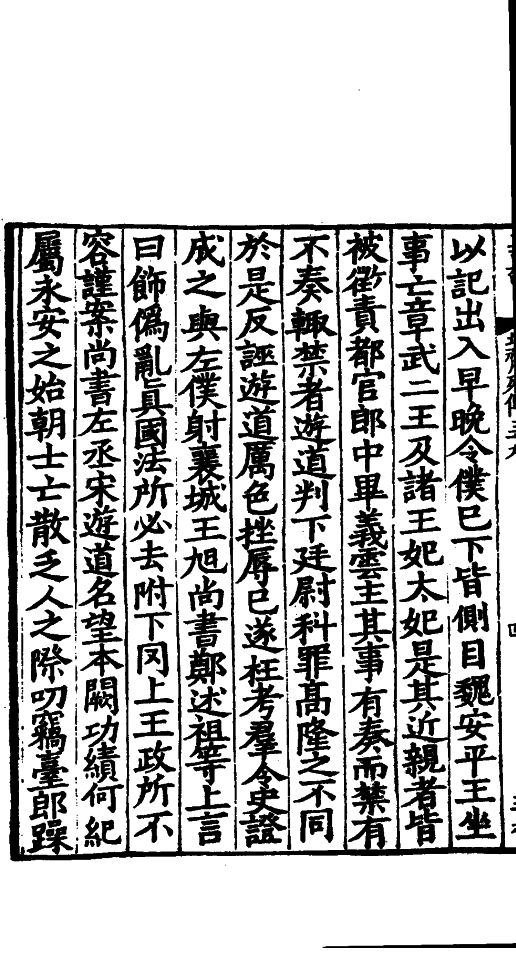 以記出入早晚令僕已下皆側目魏安平王坐
事亡章武二王及諸王妃太妃是其近親者皆
被徵責都官郎中畢義雲主其事有奏而禁有
不奏輙禁者遊道判下廷尉科罪髙隆之不同
於是反誣遊道厲色挫辱已遂枉考羣令史證
成之與左僕射襄城王旭尚書鄭述祖等上言
曰飾僞亂眞國法所必去附下罔上王政所不
容謹案尚書左丞宋遊道名望本闕功績何紀
屬永安之始朝士亡散乏人之際叨竊臺郎躁